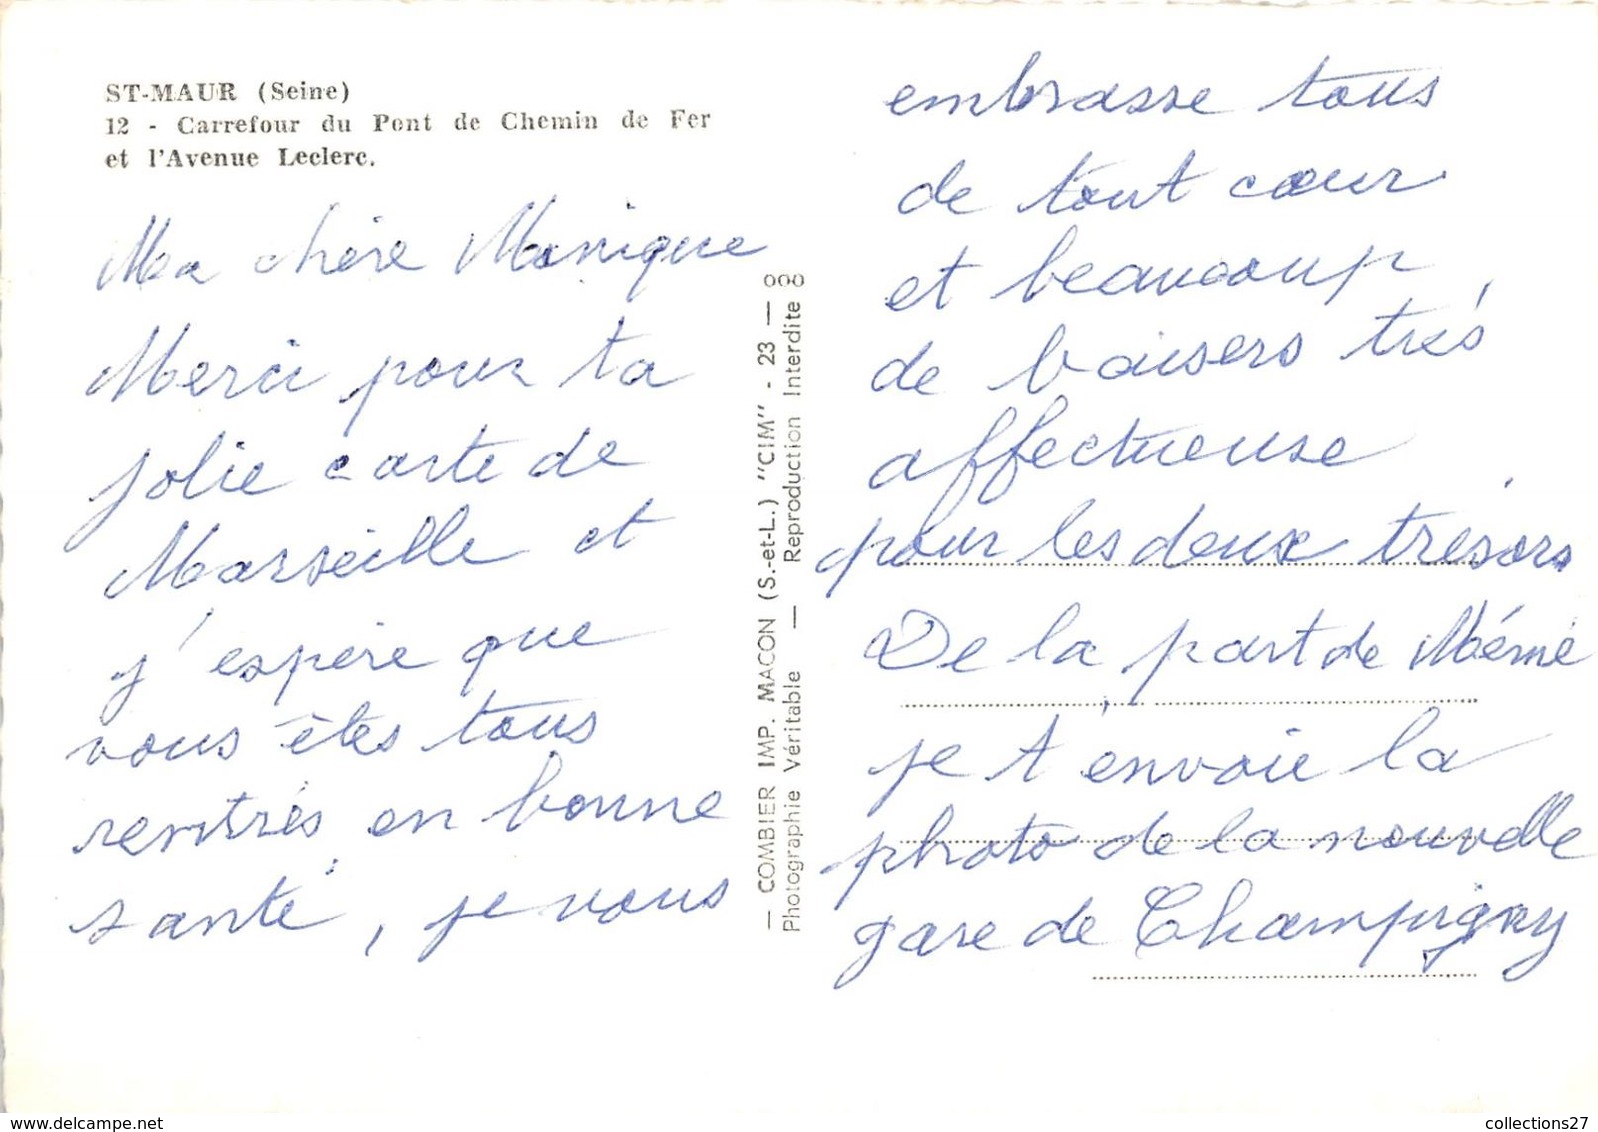 ST-MAUR (Seine)
12 - Carrefour du Pont de Chemin de Fer
et l'Avenue Leclerc.
Ma chère Monique
Merci pour ta
jolie carte de
Marseille et
j'espère que
vous êtes tous
rentrés en bonne
santé, je vous
— COMBIER IMP. MACON (S.-et-L.) "CIM" - 23 —
Photographie Véritable — Reproduction Interdite
embrasse tous
de tout cœur
et beaucoup
de baisers très
affectueuse
pour les deux trésors
De la part de Mémé
je t'envoie la
photo de la nouvelle
gare de Champigny
collections27